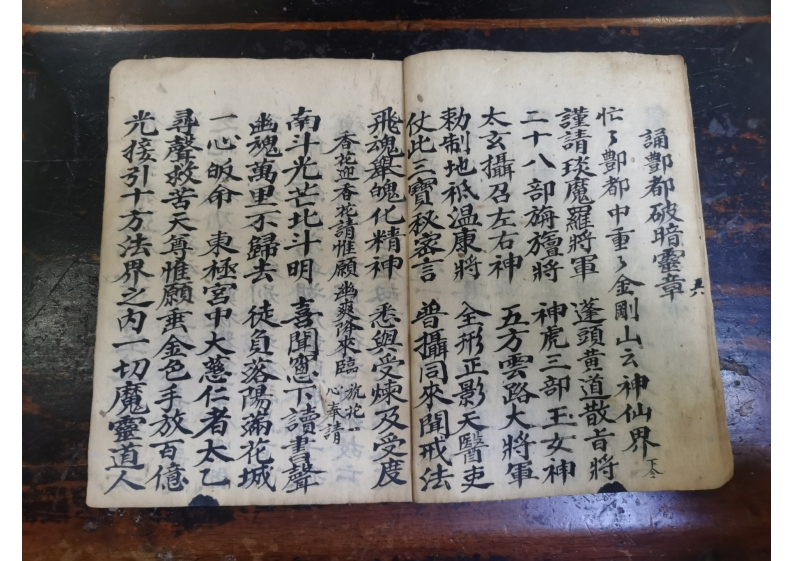 誦酆都破暗靈章
忙々酆都中重々金剛山云神仙界 下全
謹請琰魔羅將軍 蓬頭黃道散音將
二十八部旃檀將 神虎三部玉女神
太玄攝召左右神 五方雲路大將軍
勅制地祇溫康將 全形正影天醫吏
仗此三寶秘密言 普攝同來聞戒法
飛魂舉魄化精神 悉與受煉及受度
香花迎香花請惟願幽爽降來臨 散花 一心奉請
南斗光芒北斗明 喜聞窓下讀書聲
幽魂萬里不歸去 徒負落陽滿花城
一心皈命 東極宮中大慈仁者太乙
尋聲救苦天尊惟願垂金色手放百億
光接引十方法界之內一切魔靈道人